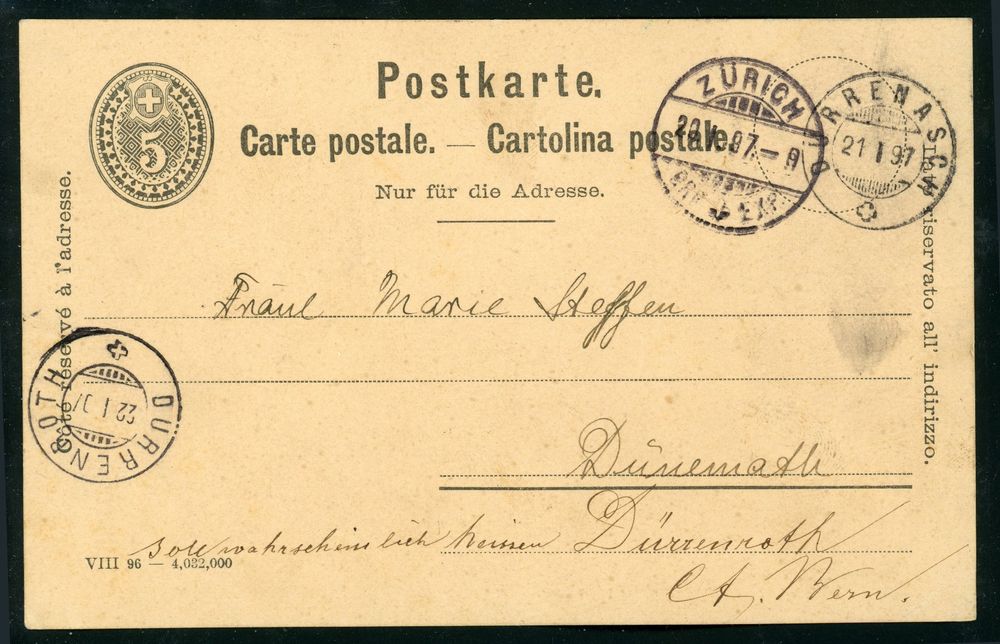 Postkarte.
Carte postale. — Cartolina postale.
Nur für die Adresse.
5
ZÜRICH
20.I.97.–
BRF. EXP.
DÜRRENASCH
21 I 97
Côté réservé à l'adresse.
Lato riservato all' indirizzo.
Fräul Marie Steffen
DÜRRENROTH
22 I 97
Dünemath
soll wahrscheinlich heissen Dürrenroth
Ct. Bern.
VIII 96 — 4,032,000